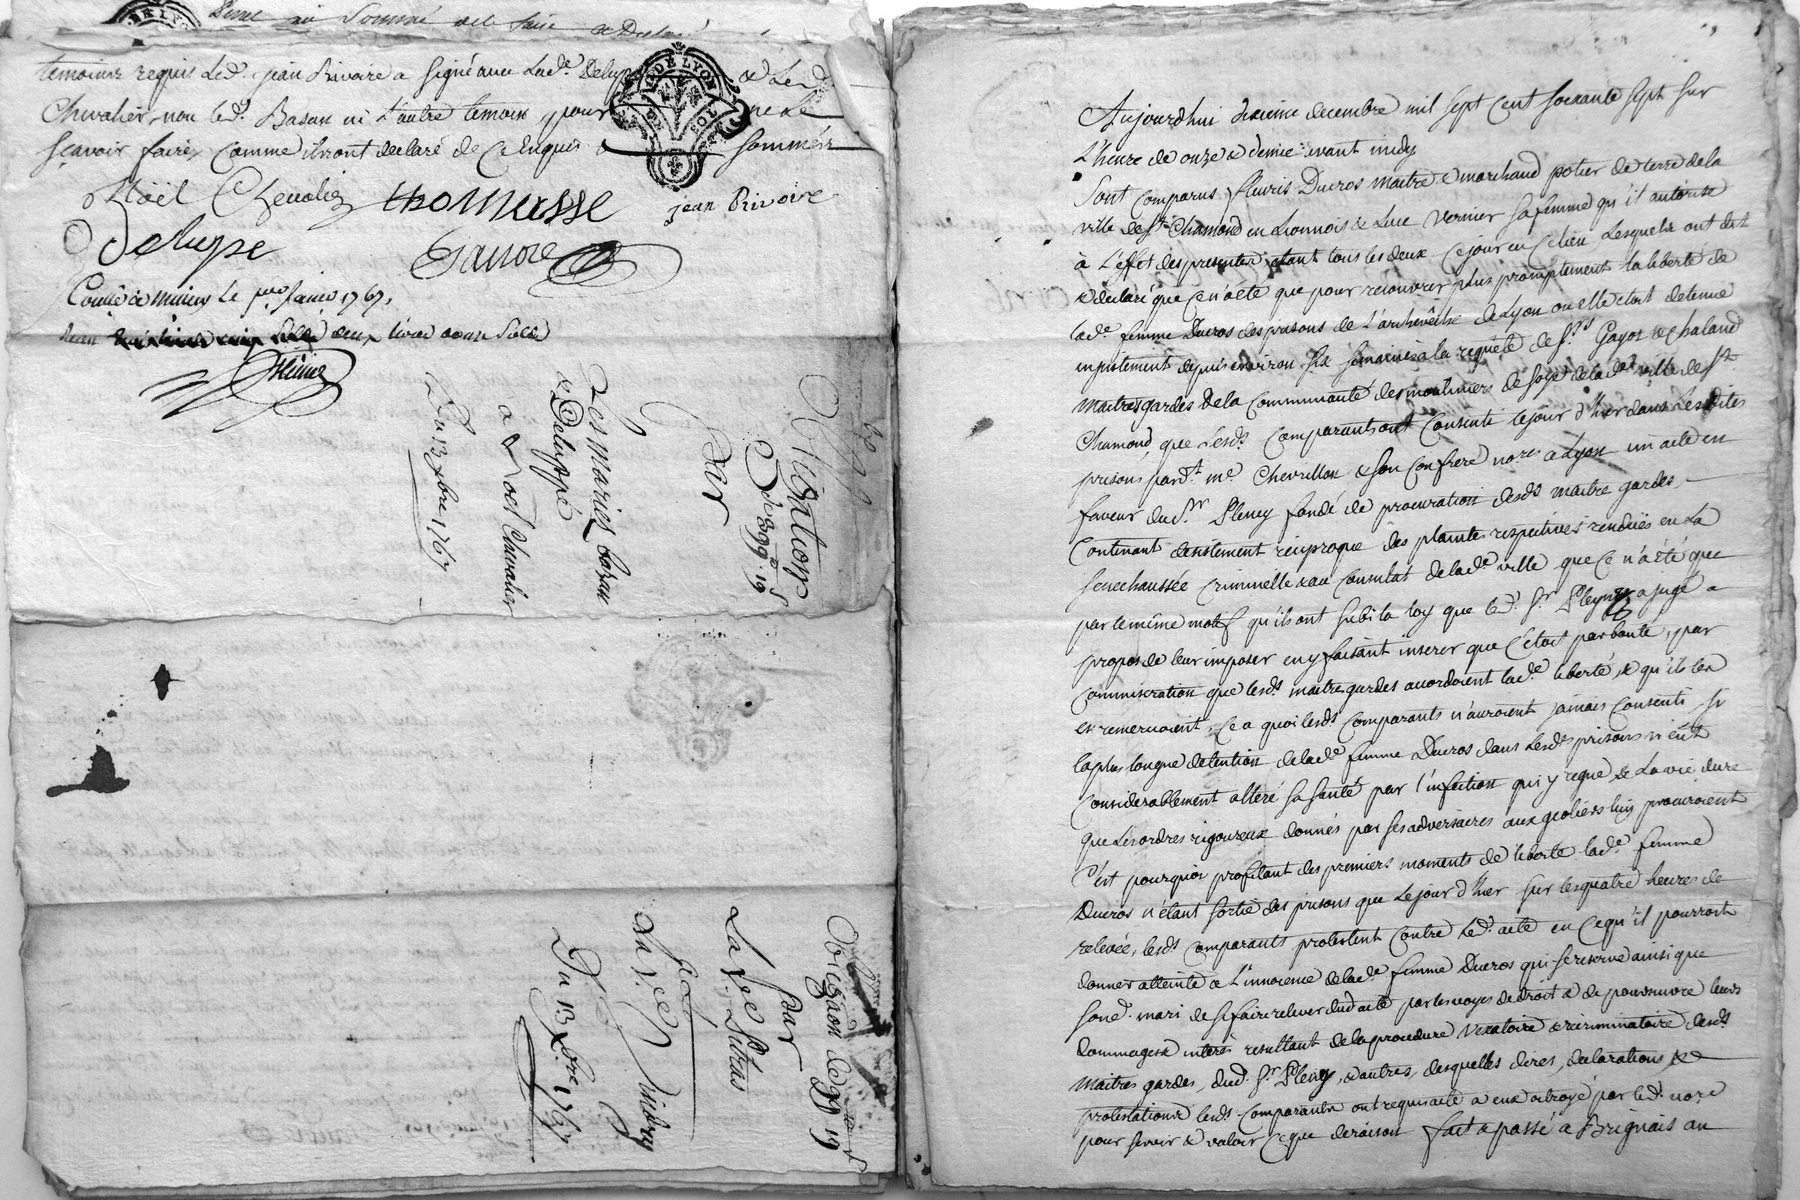 temoins requis led. jean Rivoire a signé avec lade. Delupé & led
Chevalier, non led. Bazan ni l'autre temoin, pour ne le
sçavoir faire, comme ils ont declaré de ce Enquis & sommés
DE LYON
Noël Chevalier thomasse jean Rivoire
Delupe
Contlé à le janvier 1767,
deux livres
Obligation
de 399# 19 s
par
Les mariés bazan
& Delupé
a Noel Chevalier
Du 13 Xbre 1767
par
Du 13 Xbre 1767
Aujourdhui dixieme decembre mil sept cent soixante sept sur
l'heure de onze & demie avant midy
Sont comparus fleuris Ducros maitre & marchand potier de terre de la
ville de St. Chamond en Lionnois & Luce Vernier sa femme qu'il autorise
à l'effet des presentes etant tous les deux ce jour en ce lieu Lesquels ont dit
& declaré que ce n'a eté que pour recouvrer plus promptement la liberté de
lade. femme Ducros des prisons de l'archevêché de Lyon ou elle etoit detenue
injustement depuis environ six semaines a la requête de Srs. Gayot & Chaland
maitres gardes de la communauté des mouliniers de soye de lade. ville de St.
Chamond, que lesds. comparants ont consenti le jour d'hier dans lesdites
prisons pardt. me. Chevrillon & son confrere nores a Lyon un acte en
faveur du Sr. Pleney fondé de procuration desds. maitre gardes
contenant desistement reciproque des plaintes respectives rendües en la
senechaussée criminelle & au consulat de lade. ville que ce n'a eté que
par le même motif qu'ils ont subi la loy que led. Sr. Pleney a jugé a
propos de leur imposer en y faisant inserer que c'etoit par bonté, par
commiseration que lesds. maitre gardes accordoient lade. liberté, & qu'ils les
en remercioient, ce a quoi lesds. comparants n'auroient jamais consenti si
la plus longue detention de lade. femme Ducros dans lesds. prisons n'eut
considerablement alteré sa santé par l'infection qui y regne & la vie dure
que les ordres rigoureux donnés par ses adversaires aux geoliers luy procuroient
C'est pourquoi profitant des premiers moments de liberte lade. femme
Ducros n'etant sortie des prisons que le jour d'hier sur les quatre heures de
relevée, lesds. comparants protestent contre led. acte en ce qu'il pourroit
donner atteinte a l'innocence de lade. femme Ducros qui se reserve ainsi que
sond. mari de se faire relever dud. acte par les voyes de droit & de poursuivre leurs
dommages & interes resultant de la procedure vexatoire & recriminatoire desds.
maitres gardes, dud. Sr. Pleney, & autres, desquelles dires, declarations, &
protestations lesds. comparants ont requis acte a eux octroyé par led. nore
pour servir & valoir ce que de raison fait & passé à Brignais au